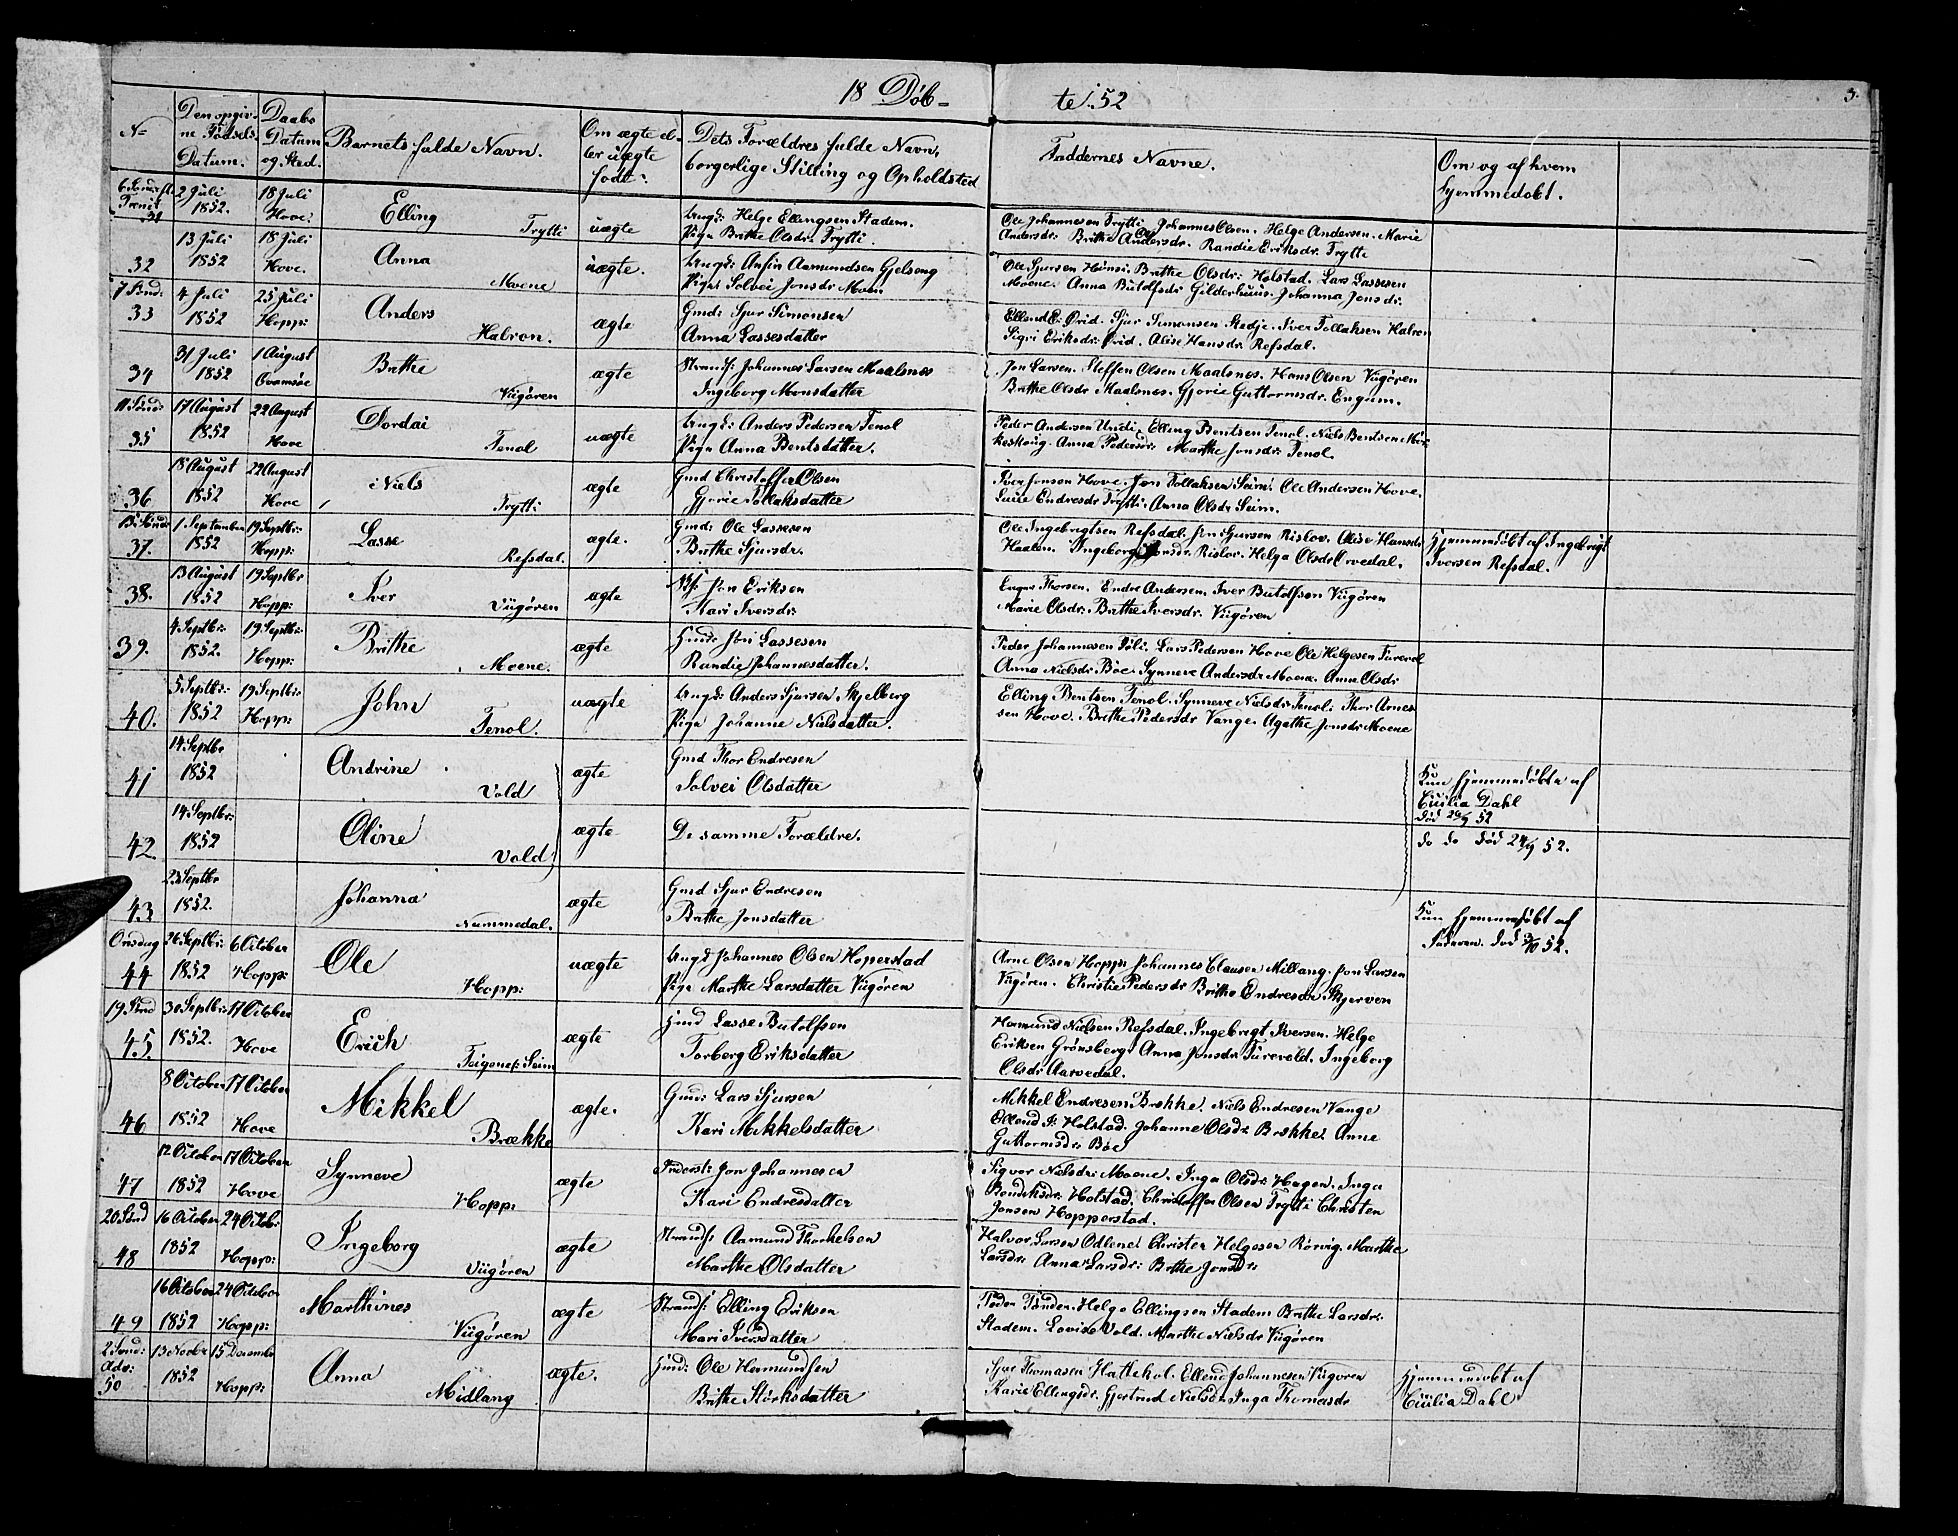 18 Döb-
te 52
3.
No
Den opgiv-
ne Fødsels
Datum.
Daabs
Datum
og Sted.
Barnets fulde Navn.
Om ægte el-
ler uægte
født.
Dets Forældres fulde Navn,
borgerlige Stilling og Opholdsted
Faddernes Navne.
Om og af hvem
hjemmedøbt.
31 2 Juli 1852. 18 Juli Hove. Elling Trytti uægte
Ungk: Helge Ellingsen Stadem.
Pige Brithe Olsdr. Trytti.
Ole Johannesen Trytti. Johannes Olsen. Helge Andersen. Marie
Andersdr. Brithe Andersdr. Randie Eriksdr. Trytti
32 13 Juli 1852 18 Juli Hove. Anna Moene uægte.
Ungk: Anfin Aamundsen
Pige Solvei Jonsdr Moen
Ole Sjursen Brithe Olsdr: Holstad. Lars Lassesen
Moene. Anna Butolfsdr Gilderhuus. Johanna Jonsdr.
7 Sönd: 33 4 Juli 1852 25 Juli Hopp: Anders Halvon. ægte
Gmd: Sjur Simonsen
Anna Lassesdatter
Ellend E. Örid. Sjur Simonsen Stedje. Iver Tollaksen Halvon
Sigri Eriksdr. Örid. Alise Hansdr. Refsdal.
34 31 Juli 1852 1 August Brithe Viigören ægte
Strands: Johannes Larsen Maalsnes
Ingeborg Monsdatter
Jon Larsen. Steffen Olsen Maalsnes. Hans Olsen Viigören
Brithe Olsdr Maalsnes. Gjorie Guttormsdr. Engum.
11 Sönd: 35 17 August 1852 22 August Hove Dordai Tenol uægte
Ungk: Anders Pedersen Tenol
Pige Anna Bentsdatter.
Peder Andersen Undi. Elling Bentsen Tenol. Niels Bentsen Mör-
keskoug. Anna Pedersdr. Marthe Jonsdr. Tenol.
36 18 August 1852 22 August Hove Niels Trytti ægte
Gmd Christoffer Olsen
Gjorie Tollaksdatter
Iver Jonsen Hove. Jon Tollaksen Seim. Ole Andersen Hove.
Endresdr Trytti. Anna Olsdr Seim.
15 Sönd: 37. 1 September 1852 19 Septbr: Hopp: Lasse Refsdal. ægte.
Gmd: Ole Lassesen
Brithe Sjursdr.
Ole Ingebrigtsen Refsdal. Jon Sjursen Rislov. Alise Hansdr
Haalen. Ingeborg Jonsdr. Rislov. Helga Olsdr Orvedal.
Hjemmedöbt af Ingebrigt
Iversen Refsdal.
38. 13 August 1852 19 Septbr Hopp: Iver Viigören ægte
Jon Eriksen
Kari Iversdr:
Thorsen. Endre Andersen. Iver Butolfsen Viigören
Marie Olsdr. Brithe Iversdr. Viigören
39. 4 Septbr: 1852. 19 Septbr: Hopp: Brithe Moene. ægte
Huusm: Jon Lassesen
Randie Johannesdatter.
Peder Johannesen Lars Pedersen Hove Ole Helgesen Turevol
Anna Nielsdr Böe. Synneve Andersdr Moene. Anne Olsdr
40. 5 Septbr: 1852 19 Septbr: Hopp: John Tenol. uægte
Ungk: Anders Sjursen Skjelberg
Pige Johanne Nielsdatter.
Elling Bentsen Tenol. Synneve Nielsdr Tenol. Thor Arnes
sen Hove. Brithe Pedersdr Vange. Agathe Jonsdr Moene
41 14 Septbr 1852 Andrine Vold ægte
Gmd Thor Endresen
Solvei Olsdatter
Kun hjemmedöbte af
Cicilia Dahl
42 14 Septbr: 1852 Oline Vold ægte
De samme Forældre.
do do död 24/9 52.
43 23 Septbr 1852. Johanna Nummedal. ægte
Gmd Sjur Endresen
Brithe Jonsdatter
Kun hjemmedöbt af
Faderen. död 52.
Onsdag 44 26 Septbr: 1852 6 October Hopp: Ole Hopp: uægte
Ungk Johannes Olsen Hoperstad
Pige Marthe Larsdatter Viigören
Arne Olsen Hopp: Johannes Clausen Millang. Jon Larsen
Viigören. Christie Pedersdr Brithe Endresdr Skjerven
19 Sönd 45 30 Septbr: 1852. 17 October Hove Erich Seim ægte
Huusm Lasse Butolfsen
Torberg Eriksdatter
Hermund Nielsen Refsdal. Ingebrigt Iversen. Helge
Eriksen Grönsberg. Anna Jonsdr Turevold. Ingeborg
Olsdr Aarvedal.
46 8 October 1852 17 October Hove Mikkel Brække ægte.
Gmd: Lars Sjursen
Kari Mikkelsdatter
Mikkel Endresen Brekke. Niels Endresen Vange
Ellend J: Holstad. Johanne Olsdr Brekke. Anne
Guttormsdr Böe
47 12 October 1852 17 October Hove Synneve Hopp: ægte
Inderst: Jon Johannesen
Kari Endresdatter
Sigvor Nielsdr: Moene. Inga Olsdr Hagen. Inga
Bendiksdr: Holstad. Christoffer Olsen Trytti Christen
Jonsen Hopperstad.
20 Sönd 48 16 October 1852 24 Octobr Hopp: Ingeborg Viigören ægte
Strands: Aamund Thorkelsen
Marthe Olsdatter
Halvor Larsen Odlene. Christen Helgesen Rörvig. Marthe
Larsdr: Anna Larsdr: Brithe Jonsdr:
49 16 October 1852 24 October Hopp: Marthines Viigören ægte
Strands: Elling Eriksen
Mari Iversdatter
Peder Helge Ellingsen Stadem Brithe Larsdr.
Stadem. Lovise Vold. Marthe Nielsdr Viigören
2 Sönd: Adv: 50 13 Novbr 1852 15 December Hopp: Anna Midlang ægte.
Huusm: Ole Hermundsen
Brithe Störksdatter
Sjur Thomasen Hattehol. Ellend Johannesen Viigören
Karie Ellingsdr. Gjertrud Nielsdr Inga Thomesdr
Hjemmedöbt af
Cicilia Dahl